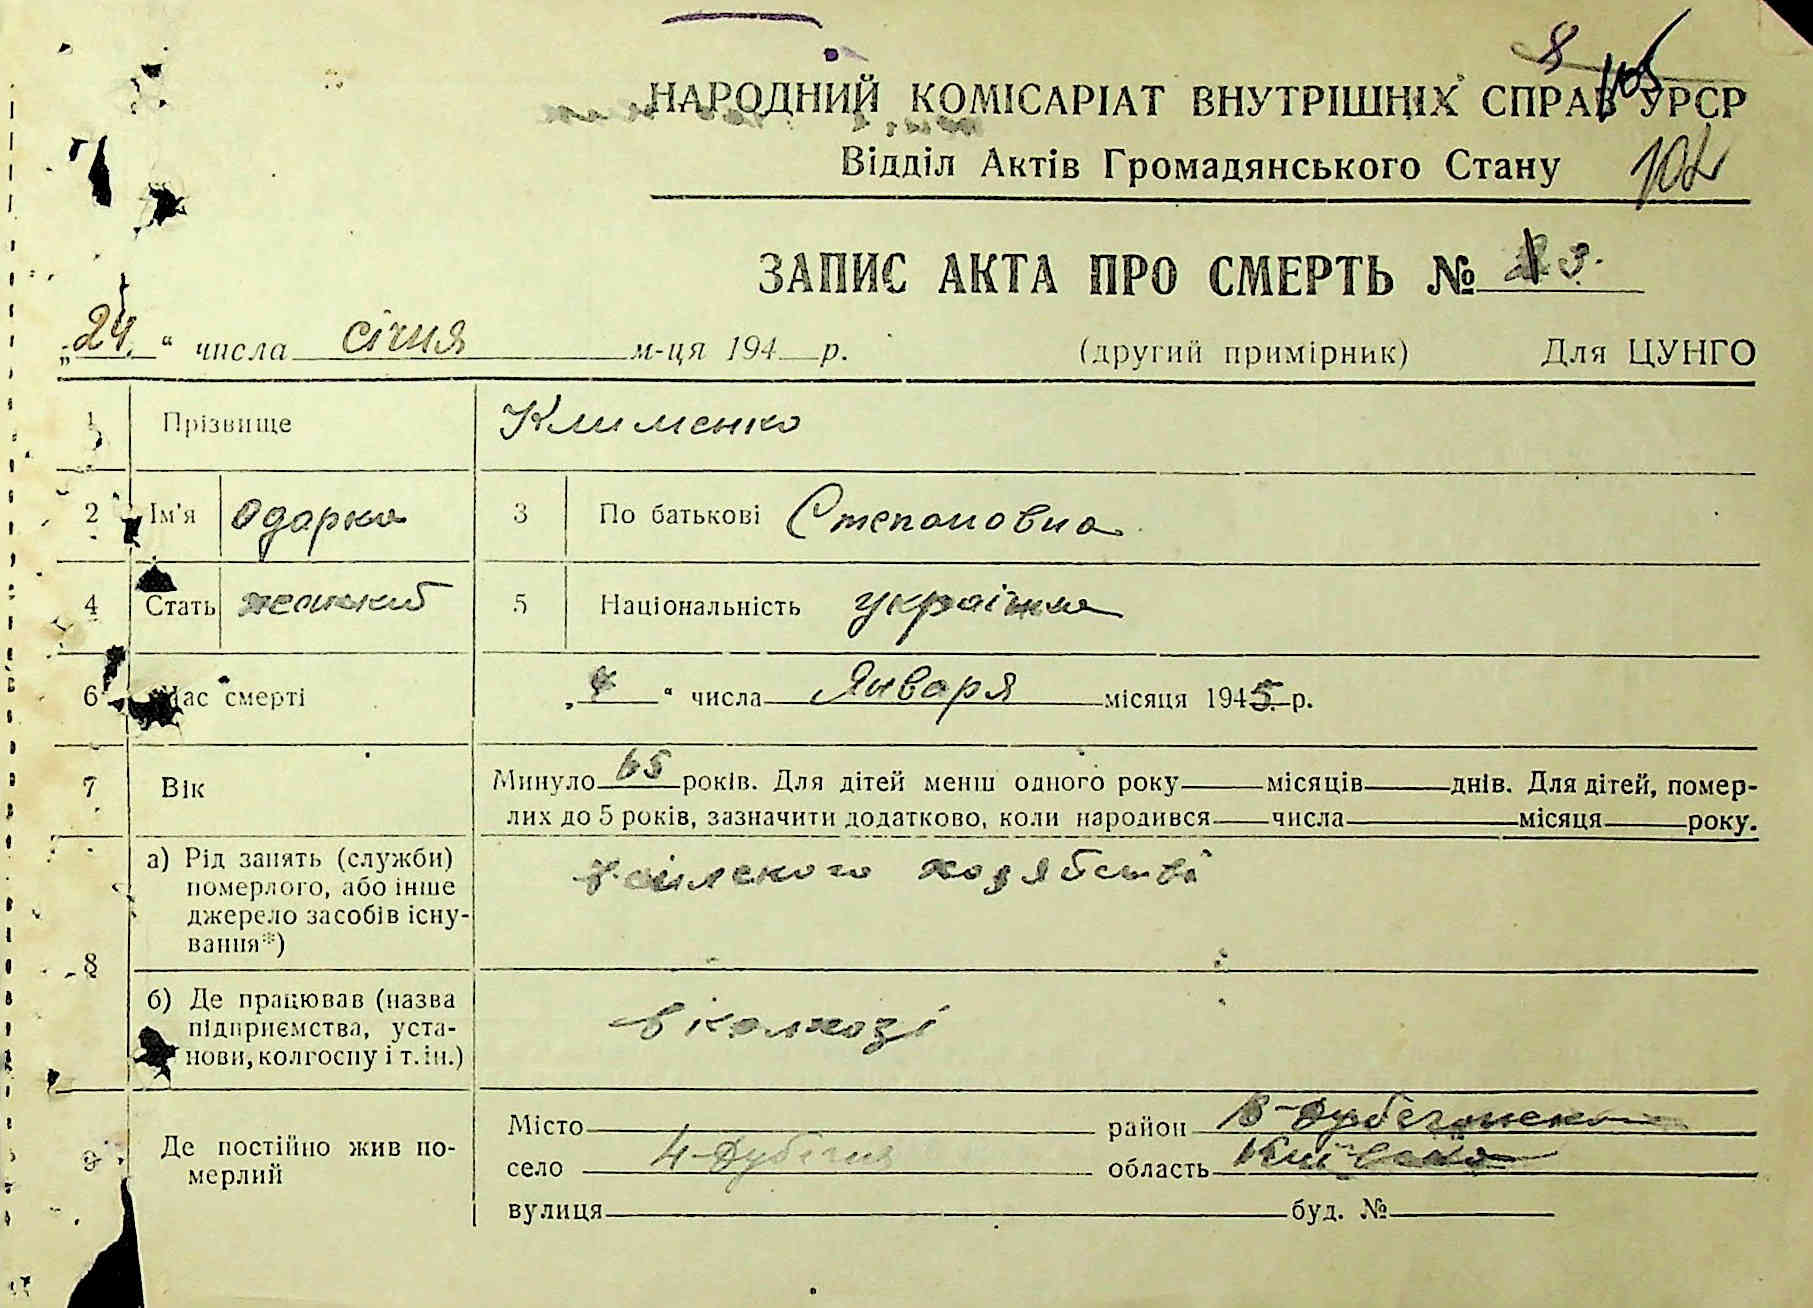 8 105
НАРОДНИЙ КОМІСАРІАТ ВНУТРІШНІХ СПРАВ УРСР
Відділ Актів Громадянського Стану 102
ЗАПИС АКТА ПРО СМЕРТЬ № 3.
„24“ числа січня м-ця 194 р. (другий примірник) Для ЦУНГО
1 Прізвище Клименко
2 Ім'я Одарка 3 По батькові Степановна
4 Стать женский 5 Національність українка
6 Час смерті „4“ числа Января місяця 1945 р.
7 Вік Минуло 65 років. Для дітей менш одного року місяців днів. Для дітей, помер-
лих до 5 років, зазначити додатково, коли народився числа місяця року.
8 а) Рід занять (служби)
померлого, або інше
джерело засобів існу-
вання*)
б) Де працював (назва
підприємства, уста-
нови, колгоспу і т. ін.)
в колхозі
9 Де постійно жив по-
мерлий
Місто район В-Дубечанск
село Н-Дубечня область Київска
вулиця буд. №